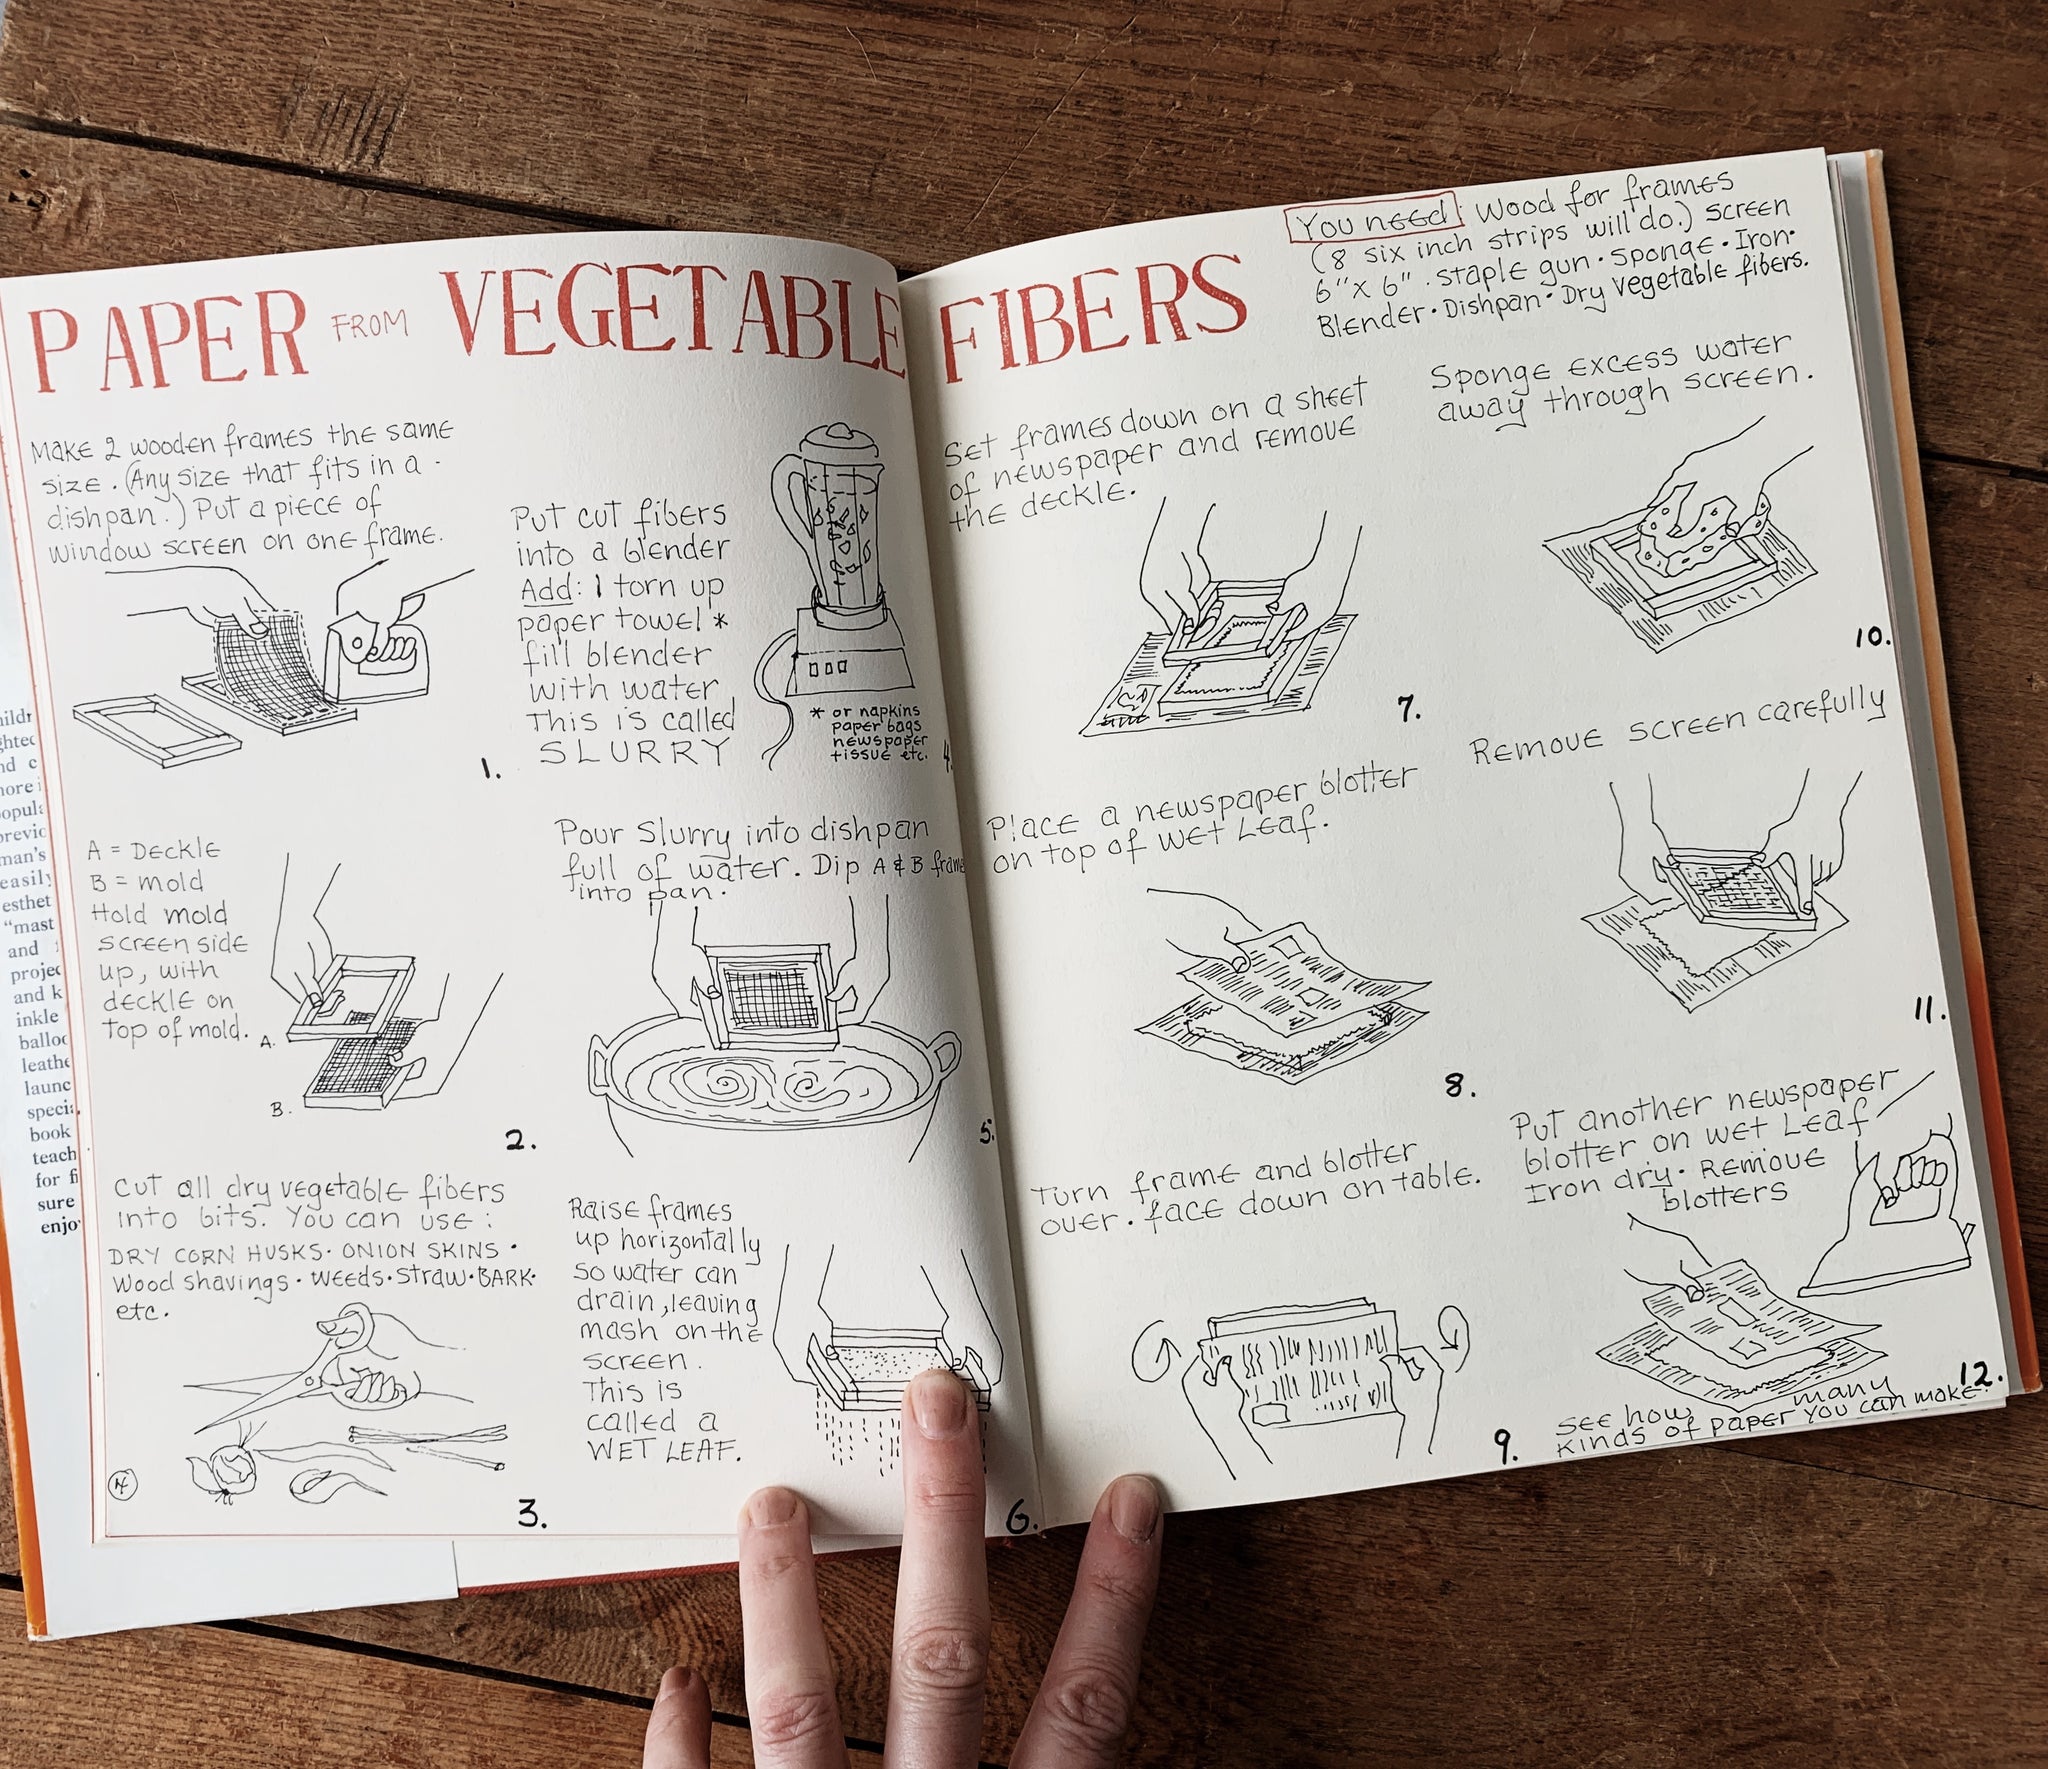 PAPER FROM VEGETABLE FIBERS
You need: Wood for frames
(8 six inch strips will do.) Screen
6"x 6". Staple gun • Sponge • Iron•
Blender • Dishpan • Dry vegetable fibers.
Make 2 wooden frames the same
size. (Any size that fits in a
dishpan.) Put a piece of
window screen on one frame.
1.
A = Deckle
B = mold
Hold mold
screen side
up, with
deckle on
top of mold.
A.
B.
2.
Cut all dry vegetable fibers
into bits. You can use:
DRY CORN HUSKS • ONION SKINS •
Wood shavings • weeds • straw • BARK•
etc.
3.
Put cut fibers
into a blender
Add: 1 torn up
paper towel *
fill blender
with water
This is called
SLURRY
* or napkins
paper bags
newspaper
tissue etc.
4.
Pour Slurry into dishpan
full of water. Dip A & B frame
into pan.
5.
Raise frames
up horizontally
so water can
drain, leaving
mash on the
screen.
This is
called a
WET LEAF.
6.
Set frames down on a sheet
of newspaper and remove
the deckle.
7.
Place a newspaper blotter
on top of wet Leaf.
8.
Turn frame and blotter
over. face down on table.
9.
Sponge excess water
away through screen.
10.
Remove screen carefully
11.
Put another newspaper
blotter on wet Leaf
Iron dry. Remove
blotters
12.
See how many
kinds of paper you can make.
previc
man's
easily
esthet
"mast
and
projec
and k
inkle
balloo
leathe
launc
specia
book
teach
for fi
sure
enjo